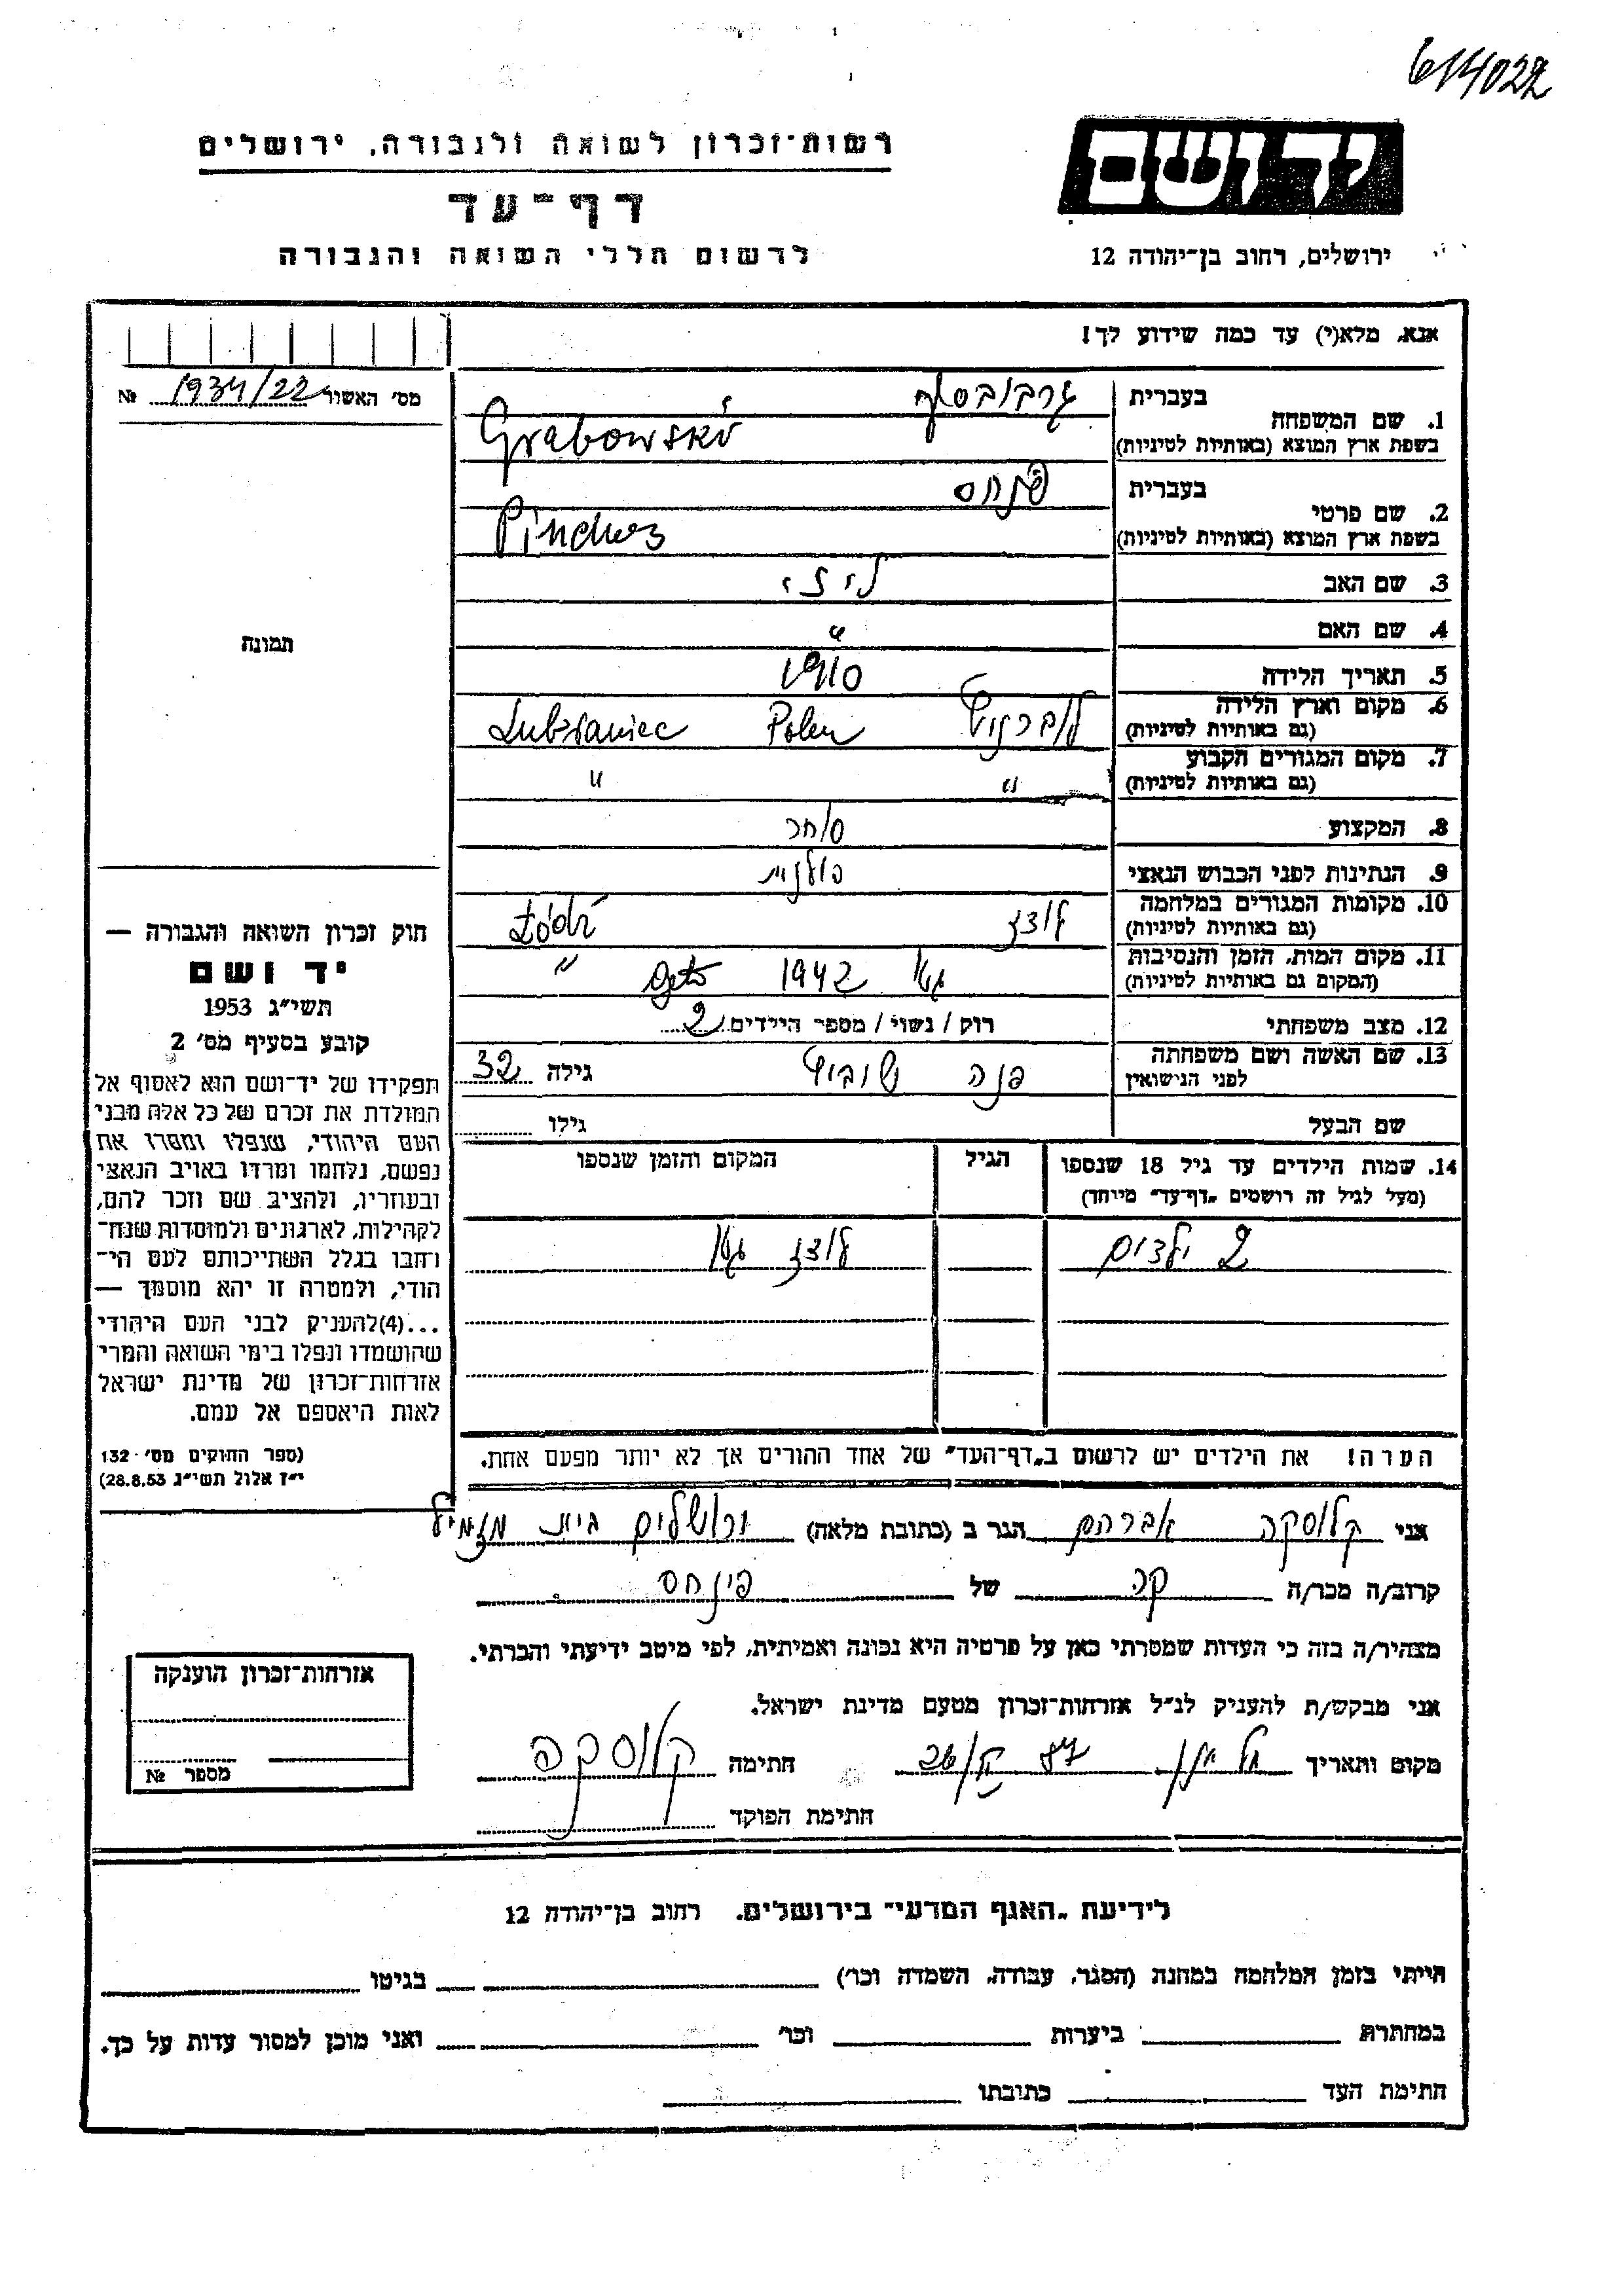 614022
רשות־זכרון לשואה ולגבורה, ירושלים
יד ושם
דף־עד
לרשום חללי השואה והגבורה
ירושלים, רחוב בן־יהודה 12
אנא, מלא(י) עד כמה שידוע לך!
מס׳ האשור 1934/22 №
בעברית
1. שם המשפחה
בשפת ארץ המוצא (באותיות לטיניות)
גרבובסקי
Grabowski
בעברית
2. שם פרטי
בשפת ארץ המוצא (באותיות לטיניות)
פנחס
Pinchas
3. שם האב
4. שם האם
תמונה
5. תאריך הלידה
6. מקום וארץ הלידה
(גם באותיות לטיניות)
Lubraniec Polen
7. מקום המגורים הקבוע
(גם באותיות לטיניות)
" "
8. המקצוע סוחר
9. הנתינות לפני הכבוש הנאצי פולנית
10. מקומות המגורים במלחמה
(גם באותיות לטיניות)
לודז Łódź
11. מקום המות, הזמן והנסיבות
(המקום גם באותיות לטיניות)
גטו 1942 geto "
12. מצב משפחתי רוק / נשוי / מספר הילדים 2
13. שם האשה ושם משפחתה
לפני הנישואין
פנה גילה 32
שם הבעל גילו
14. שמות הילדים עד גיל 18 שנספו
(מעל לגיל זה רושמים „דף־עד״ מיוחד)
הגיל
המקום והזמן שנספו
2 ילדים לודז גטו
הערה! את הילדים יש לרשום ב„דף־העד״ של אחד ההורים אך לא יותר מפעם אחת.
חוק זכרון השואה והגבורה —
יד ושם
תשי״ג 1953
קובע בסעיף מס׳ 2
תפקידו של יד־ושם הוא לאסוף אל
המולדת את זכרם של כל אלה מבני
העם היהודי, שנפלו ומסרו את
נפשם, נלחמו ומרדו באויב הנאצי
ובעוזריו, ולהציב שם וזכר להם,
לקהילות, לארגונים ולמוסדות שנח־
רחבו בגלל השתייכותם לעם הי־
הודי, ולמטרה זו יהא מוסמך —
...(4)להעניק לבני העם היהודי
שהושמדו ונפלו בימי השואה והמרי
אזרחות־זכרון של מדינת ישראל
לאות היאספם אל עמם.
(ספר החוקים מס׳ 132
י״ז אלול תשי״ג 28.8.53)
אני קלוסקה אברהם הגר ב (כתובת מלאה) ירושלים
קרוב/ה מכר/ה של פינחס
מצהיר/ה בזה כי העדות שמסרתי כאן על פרטיה היא נכונה ואמיתית, לפי מיטב ידיעתי והכרתי.
אני מבקש/ת להעניק לנ״ל אזרחות־זכרון מטעם מדינת ישראל.
מקום ותאריך חתימה קלוסקה
חתימת הפוקד
אזרחות־זכרון הוענקה
מספר №
לידיעת „האגף המדעי״ בירושלים, רחוב בן־יהודה 12
הייתי בזמן המלחמה במחנה (הסגר, עבודה, השמדה וכו׳) בגיטו
במחתרת ביערות וכו׳ ואני מוכן למסור עדות על כך.
חתימת העד כתובתו